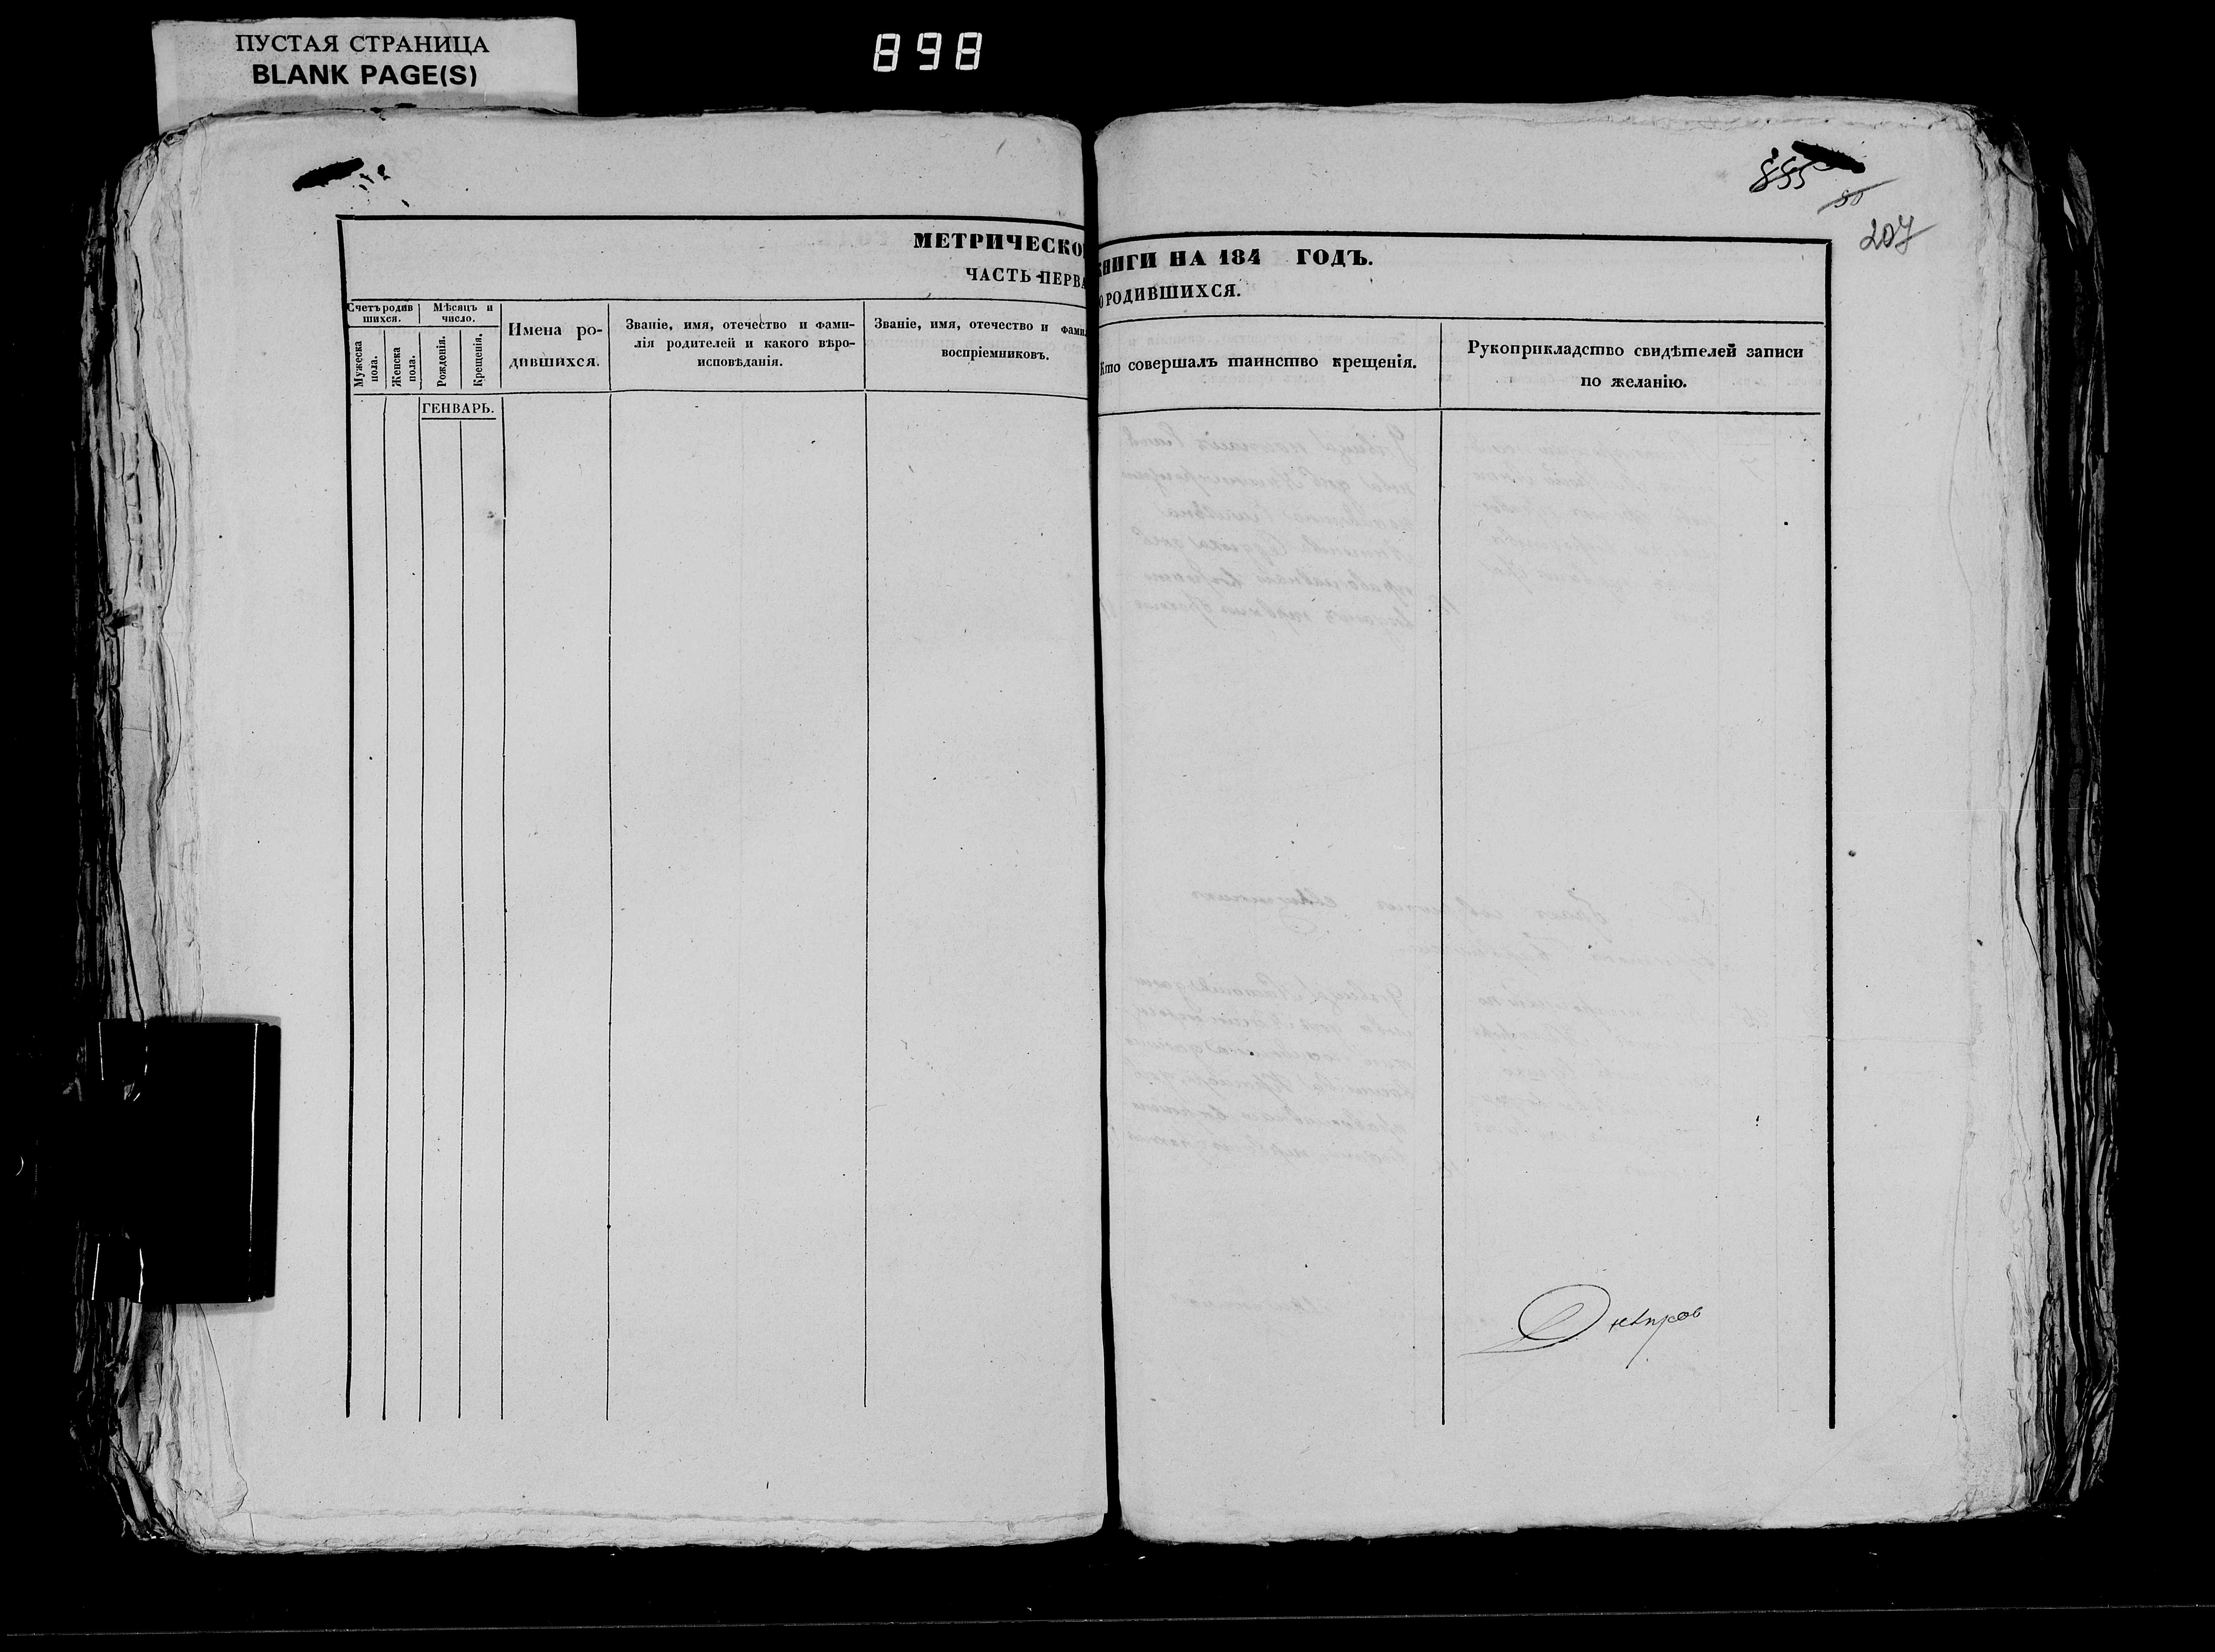 ПУСТАЯ СТРАНИЦА
BLANK PAGE(S)
898
885
80
207
МЕТРИЧЕСКО КНИГИ НА 184 ГОДЪ.
ЧАСТЬ ПЕРВА О РОДИВШИХСЯ.
Счетъ родив
шихся.
Мужеска
пола.
Женска
пола.
Мѣсяцъ и
число.
Рожденія.
Крещенія.
Имена ро-
дившихся.
Званіе, имя, отечество и фами-
лія родителей и какого вѣро-
исповѣданія.
Званіе, имя, отечество и фами
воспріемниковъ.
Кто совершалъ таинство крещенія.
Рукоприкладство свидѣтелей записи
по желанію.
ГЕНВАРЬ.